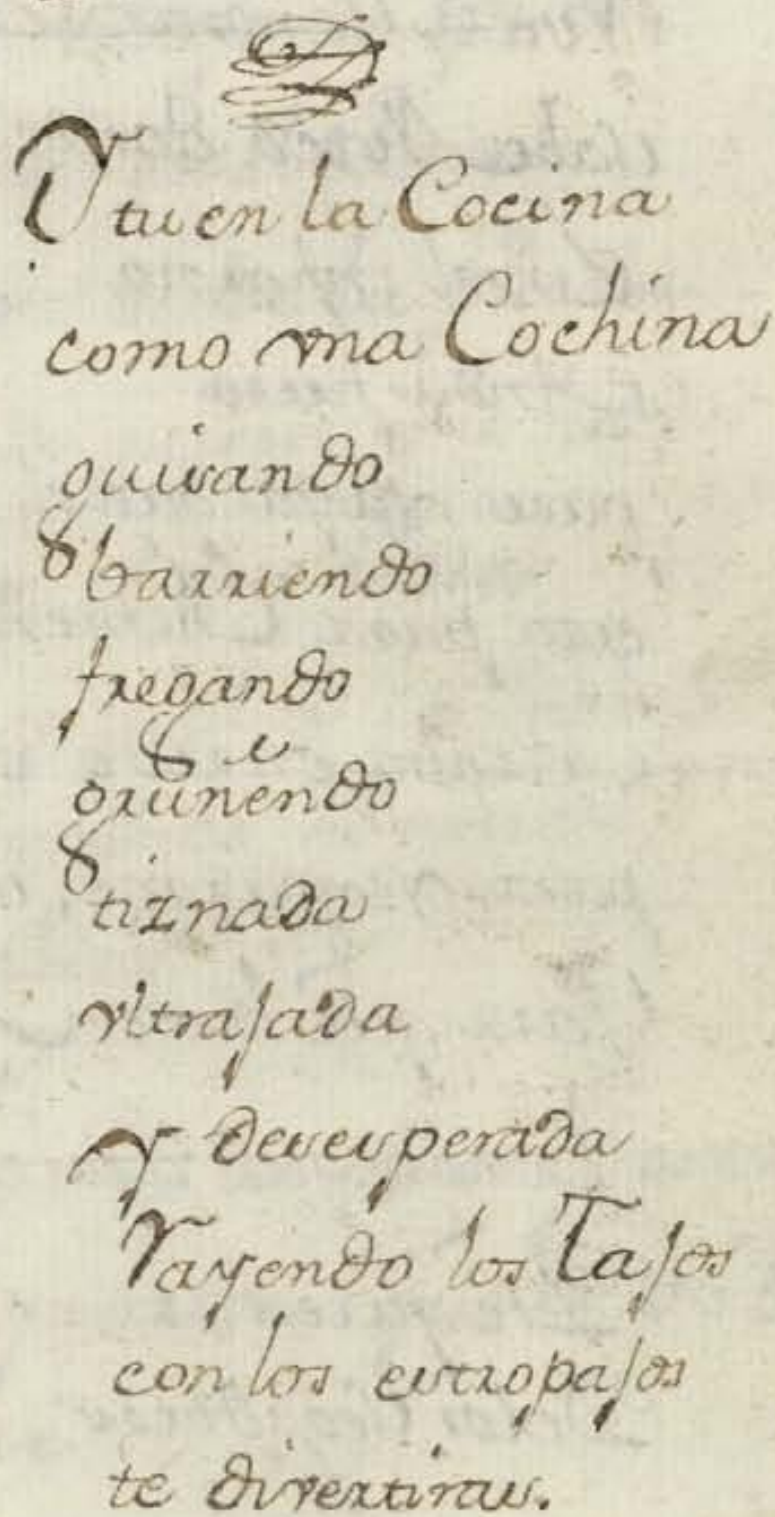 Y tu en la Cocina
como vna Cochina
guisando
barriendo
fregando
gruñendo
tiznada
vltrajada
y desesperada
Rayendo los Tajos
con los estropajos
te divertiras.